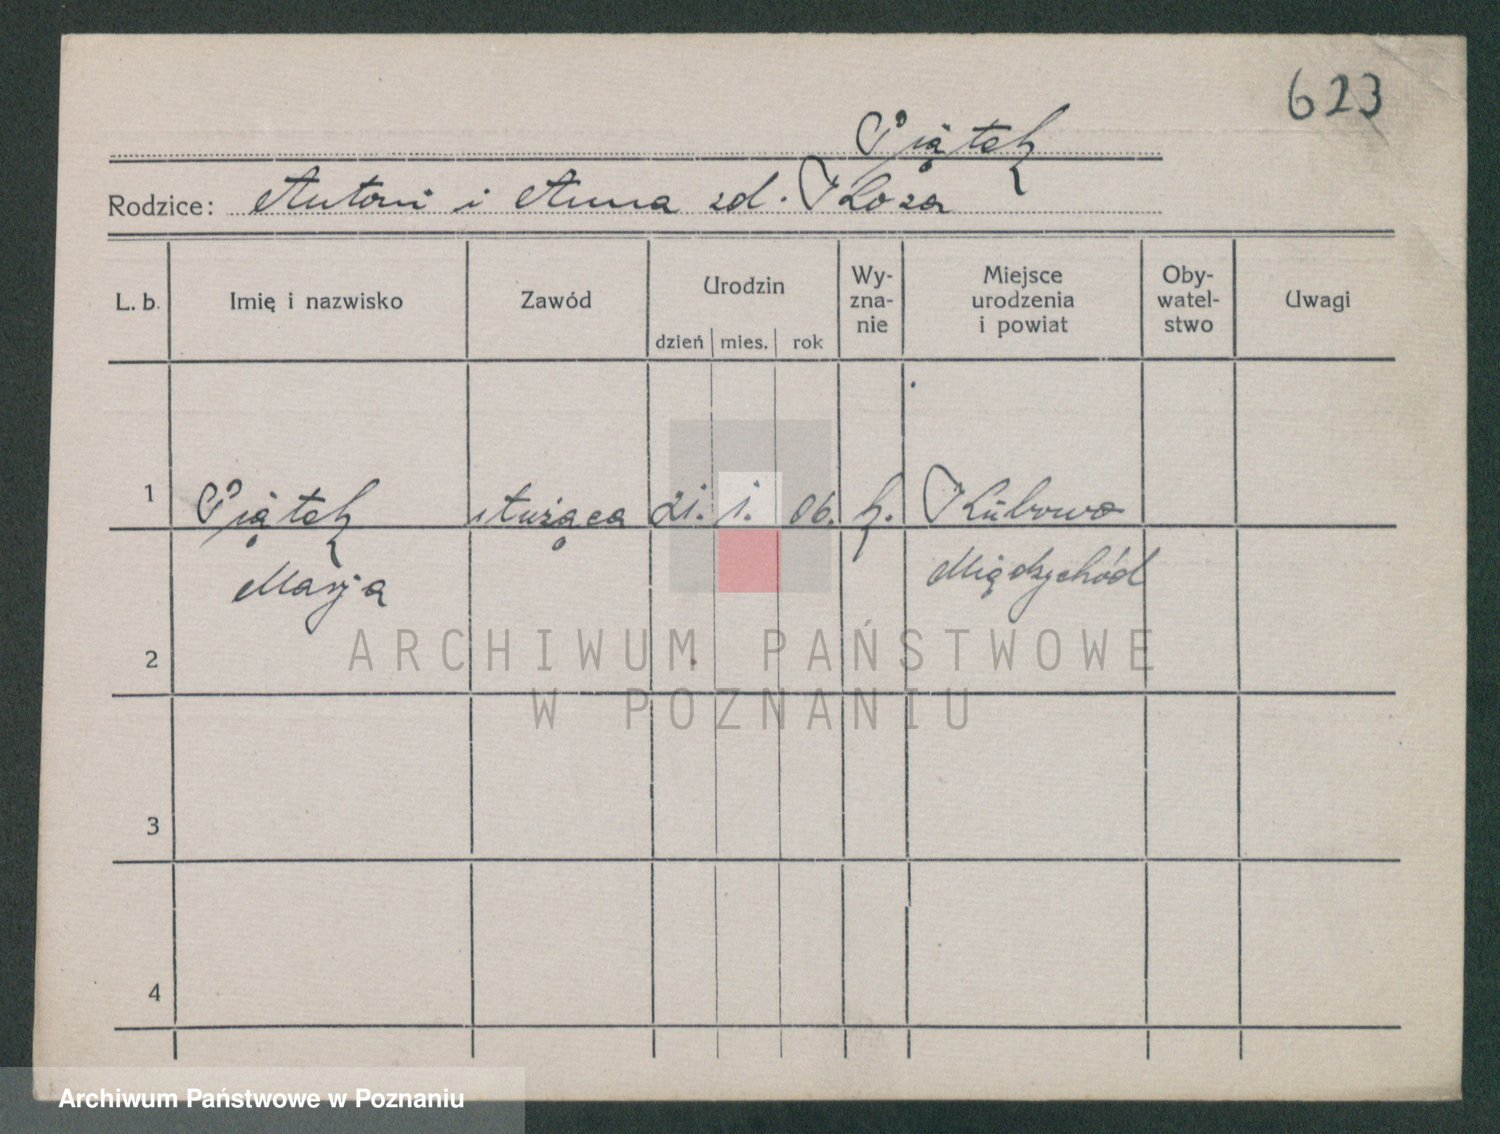 623
Piątek
Rodzice: Antoni i Anna zd. Koza
L. b.
Imię i nazwisko
Zawód
Urodzin
dzień mies. rok
Wy-
zna-
nie
Miejsce
urodzenia
i powiat
Oby-
watel-
stwo
Uwagi
1 Piątek służąca 21. 1. 06. k.
Marja Międzychód
2
3
4
ARCHIWUM PAŃSTWOWE
W POZNANIU
Archiwum Państwowe w Poznaniu